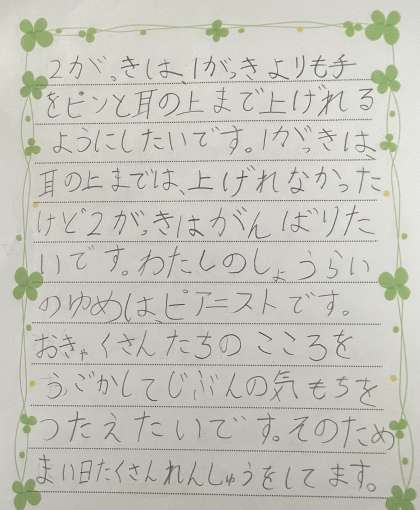 2がっきは、1がっきよりも手
をピンと耳の上まで上げれる
ようにしたいです。1がっきは、
耳の上までは、上げれなかった
けど2がっきはがんばりた
いです。わたしのしょうらい
のゆめは、ピアニストです。
おきゃくさんたちのこころを
うごかしてじぶんの気もちを
つたえたいです。そのため
まい日たくさんれんしゅうをしてます。